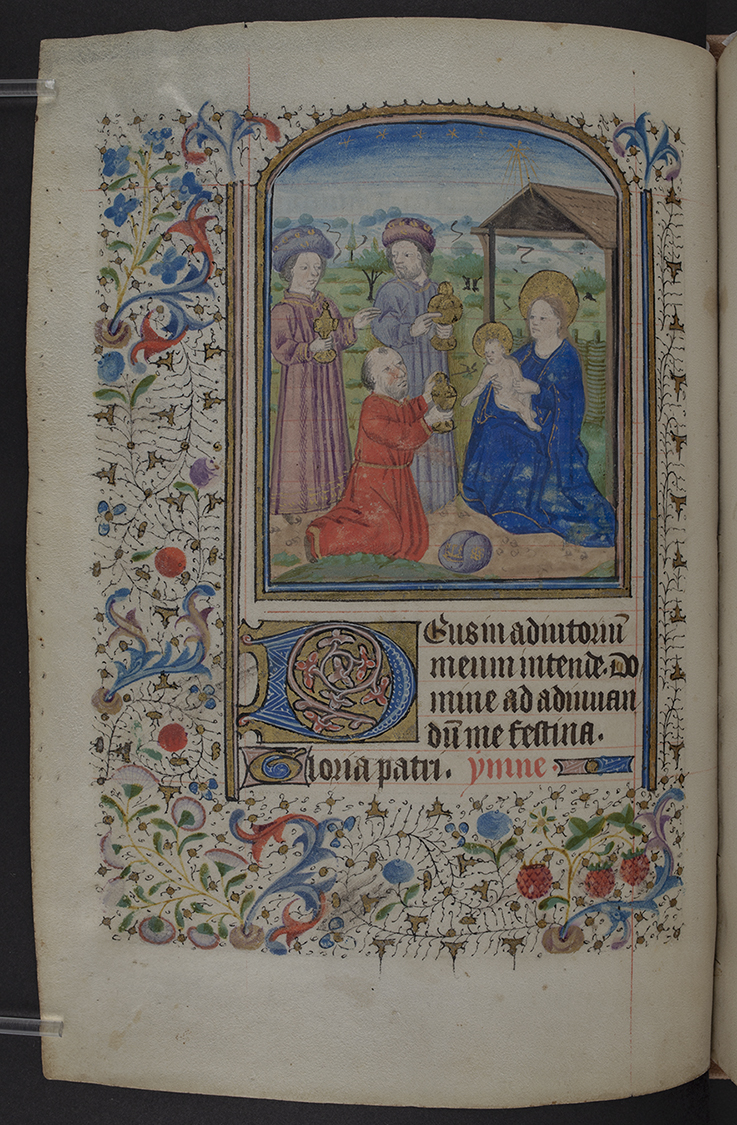 Deus in adiutoriū
meum intende. Do
mine ad adiuuan
dū me festina.
Gloria patri. ymne.